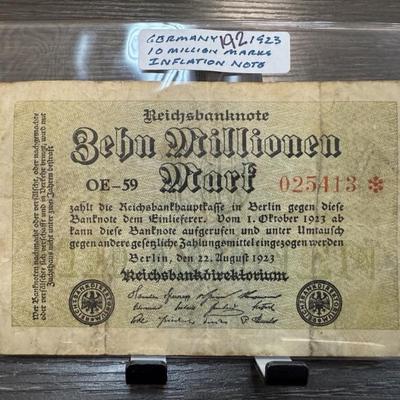 GERMANY 192 1923
10 MILLION MARKS
INFLATION NOTE
Reichsbanknote
Zehn Millionen
OE-59 Mark 025413 *
zahlt die Reichsbankhauptkasse in Berlin gegen diese
Banknote dem Einlieferer. Vom 1. Oktober 1923 ab
kann diese Banknote aufgerufen und unter Umtausch
gegen andere gesetzliche Zahlungsmittel eingezogen werden
Berlin, den 22. August 1923
Reichsbankdirektorium
Wer Banknoten nachmacht oder verfälscht, oder nachgemachte
oder verfälschte sich verschafft und in Verkehr bringt, wird mit
Zuchthaus nicht unter zwei Jahren bestraft